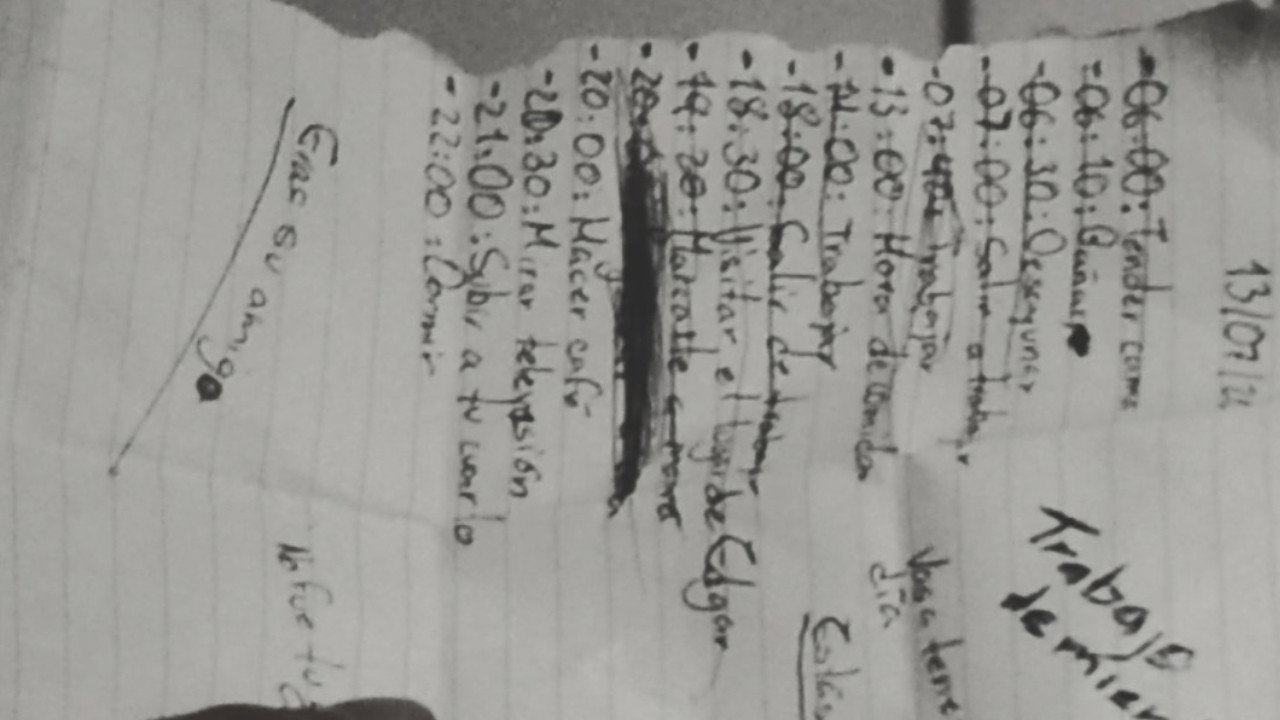 13/07/22
-06:00: Tender cama
-06:10: Bañarse
-06:30: Desayunar
-07:00: Salir a trabajar
-07:40: Trabajar
-13:00: Hora de comida
-14:00: Trabajar
-18:00: Salir de trabajar
-18:30: Visitar el lugar de Edgar
-19:20: Marcarle a
-20:00: Hacer café
-20:30: Mirar televisión
-21:00: Subir a tu cuarto
-22:00: Dormir
Trabajo
de mier
Vas a tene
día
Estás
Eras su amigo
No fue tu